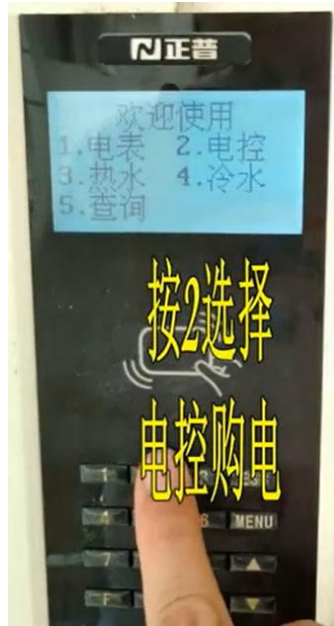 正普
欢迎使用
1.电表 2.电控
3.热水 4.冷水
5.查询
按2选择
电控购电
6 MENU
7
F